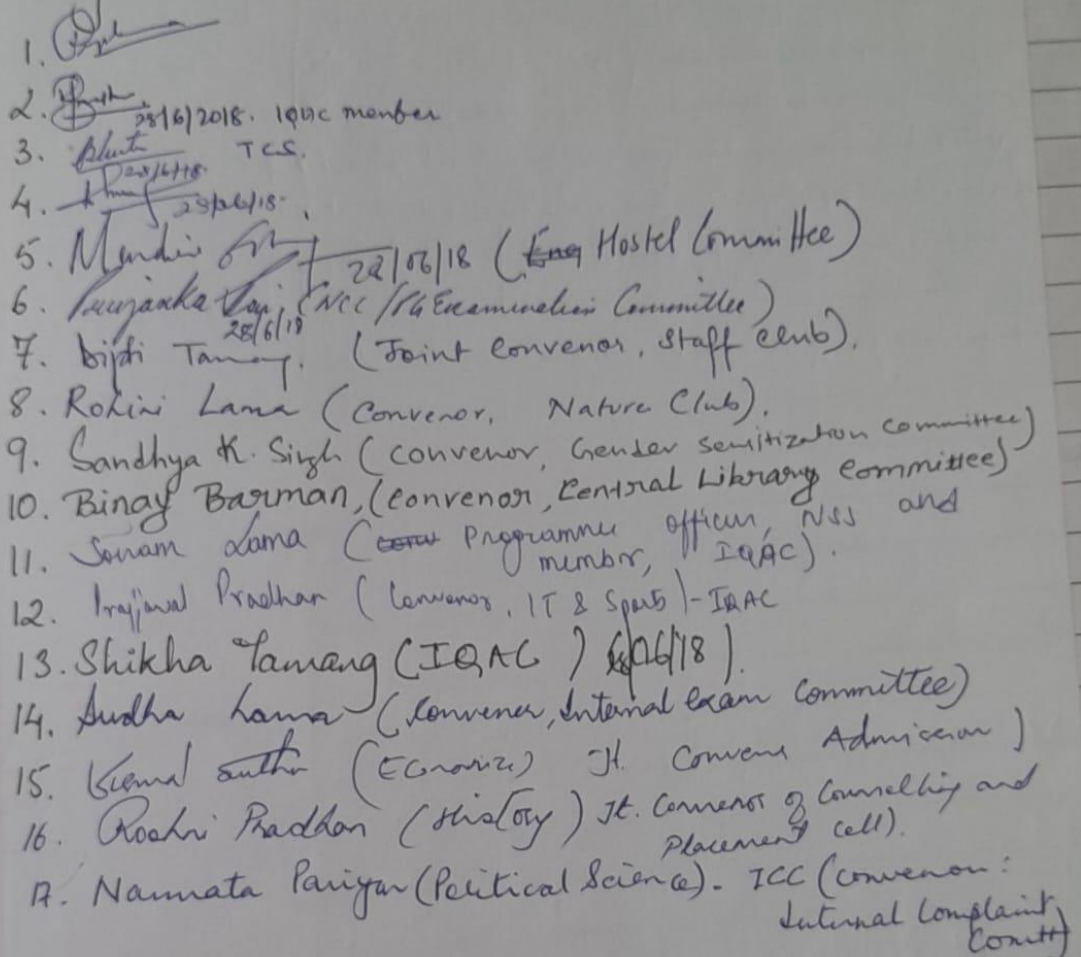 1.
2. 28/6/2018. IQAC member
3. TCS.
28/6/18.
4. 28/06/18.
5. 28/06/18 (Hostel Committee)
6. (NCC / PG Examination Committee)
28/6/18
7. Dipti Tamang. (Joint Convenor, Staff Club).
8. Rohini Lama (Convenor, Nature Club).
9. Sandhya K. Singh (Convenor, Gender Semitization Committee)
10. Binay Barman, (Convenor, Central Library Committee)
11. Sonam Lama (Programme Officer, NSS and
member, IQAC).
12. Prajjwal Pradhan (Convenor, IT & Sports) - IQAC
13. Shikha Tamang (IQAC) /06/18).
14. Sudha Lama (Convener, Internal Exam Committee)
15. (Economics) Jt. Convenor Admission)
16. Roshni Pradhan (History) Jt. Convenor of Counselling and
Placement Cell).
17. Namrata Pariyar (Political Science). ICC (Convenor:
Internal Complaint